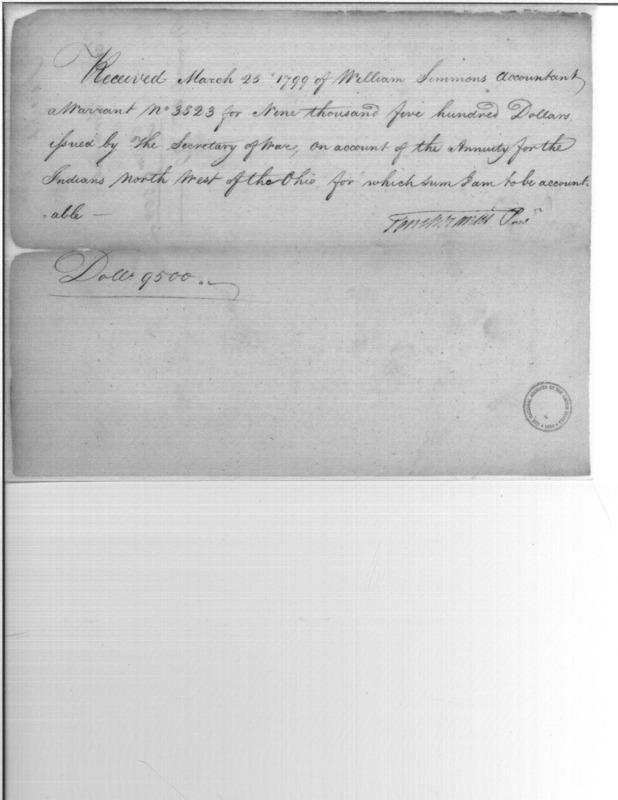 Received March 25 1799 of William Simmons Accountant
a Warrant No 3523 for Nine thousand five hundred Dollars,
issued by The Secretary of War, on account of the Annuity for the
Indians North West of the Ohio, for which sum I am to be account-
-able —
Dolls 9500.